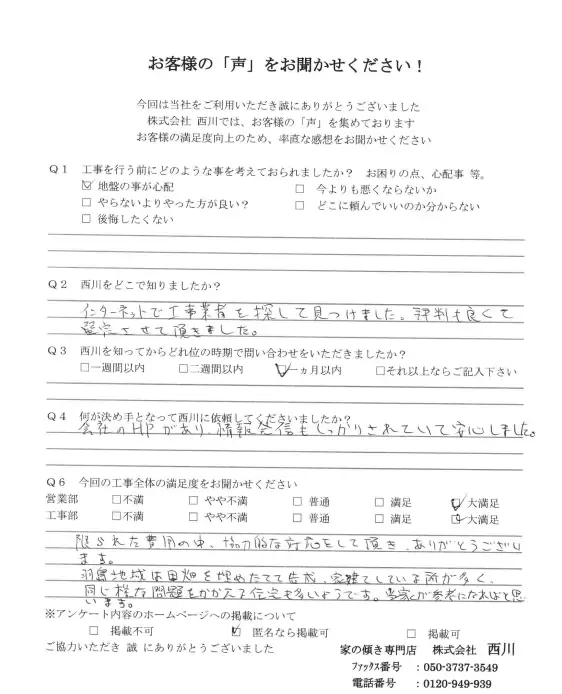 お客様の「声」をお聞かせください！
今回は当社をご利用いただき誠にありがとうございました
株式会社 西川では、お客様の「声」を集めております
お客様の満足度向上のため、率直な感想をお聞かせください
Q１ 工事を行う前にどのような事を考えておられましたか？ お困りの点、心配事 等。
☑ 地盤の事が心配 □ 今よりも悪くならないか
□ やらないよりやった方が良い？ □ どこに頼んでいいのか分からない
□ 後悔したくない
Q２ 西川をどこで知りましたか？
インターネットで工事業者を探して見つけました。評判も良くて
選定させて頂きました。
Q３ 西川を知ってからどれ位の時期で問い合わせをいただきましたか？
□一週間以内 □二週間以内 ☑一ヵ月以内 □それ以上ならご記入下さい
Q４ 何が決め手となって西川に依頼してくださいましたか？
会社のHPがあり、情報発信もしっかりされていて安心しました。
Q６ 今回の工事全体の満足度をお聞かせください
営業部 □不満 □ やや不満 □ 普通 □ 満足 ☑大満足
工事部 □不満 □ やや不満 □ 普通 □ 満足 ☑大満足
限られた費用の中、協力的な対応をして頂き、ありがとうござい
ます。
羽島地域は田畑を埋めたてて造成、家建てしている所が多く、
同じ様な問題をかかえる住宅も多いようです。当家が参考になればと思
います。
※アンケート内容のホームページへの掲載について
□ 掲載不可 ☑ 匿名なら掲載可 □ 掲載可
ご協力いただき 誠 にありがとうございました 家の傾き専門店 株式会社 西川
ﾌｧｯｸｽ番号 ：050-3737-3549
電話番号 ：0120-949-939